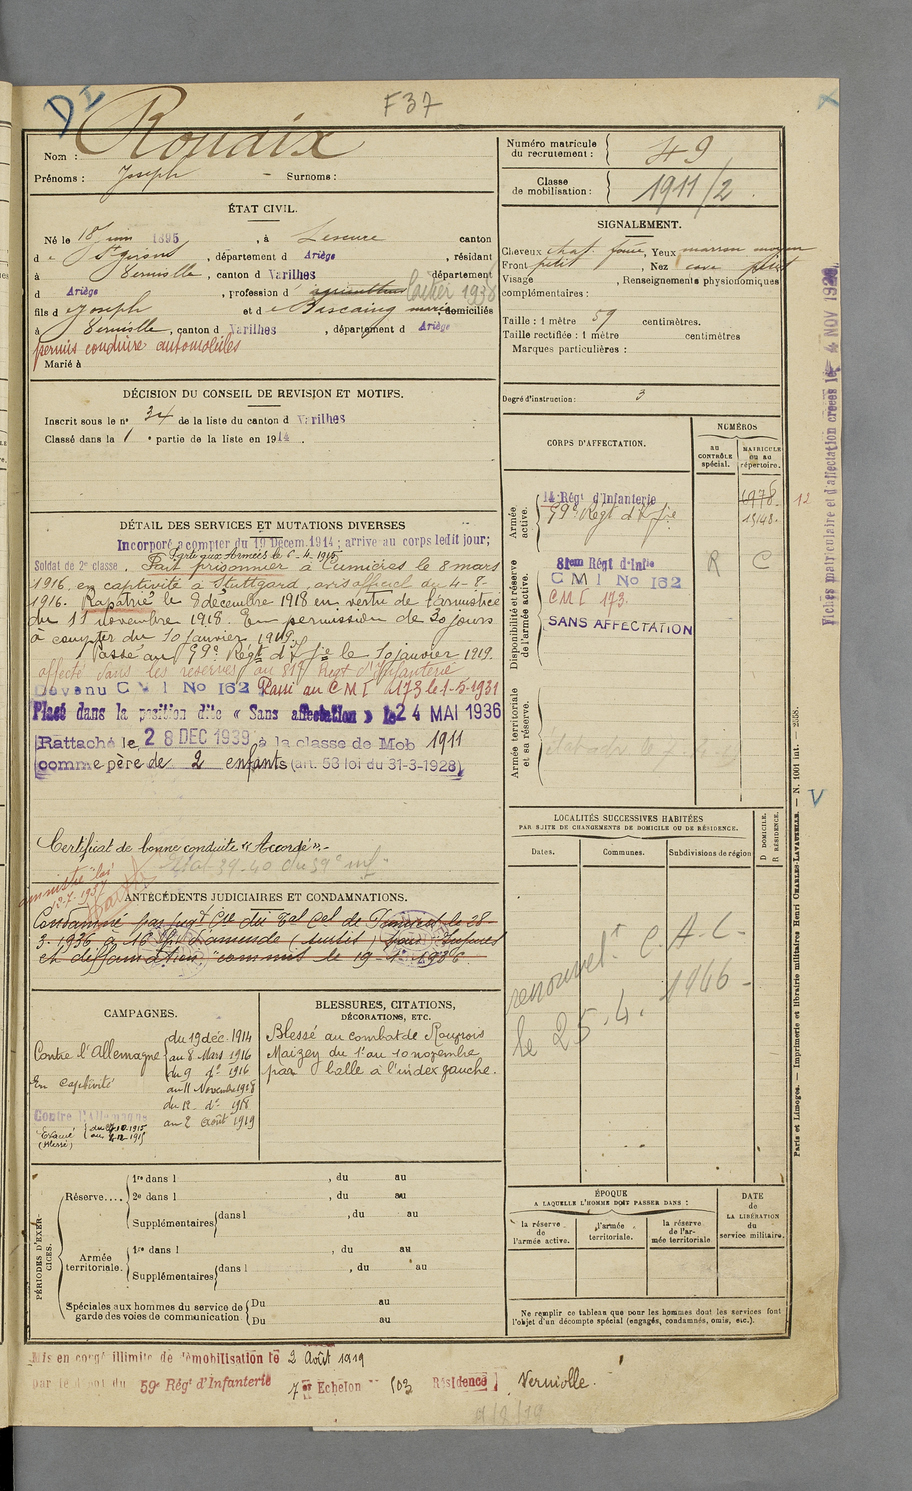 DI
F37
Nom : Roudix
Prénoms : Joseph - Surnoms :
ÉTAT CIVIL.
Né le 18 juin 1895, à Lescure canton
de St Girons, département d Ariège, résidant
à Verniolle, canton d Varilhes département
d Ariège, profession d' agriculteur laitier 1938
fils de Joseph et de domiciliés
à Verniolle, canton d Varilhes, département d Ariège
permis conduire automobiles
Marié à
DÉCISION DU CONSEIL DE REVISION ET MOTIFS.
Inscrit sous le n° 34 de la liste du canton d Varilhes
Classé dans la 1 e partie de la liste en 1914.
DÉTAIL DES SERVICES ET MUTATIONS DIVERSES
Incorporé a compter du 19 Décem. 1914 ; arrive au corps ledit jour;
Parti aux Armées le 6-4-1915
Soldat de 2e classe. Fait prisonnier à Cumières le 8 mars
1916, en captivité à Stuttgard, avis officiel du 4-8-
1916. Rapatrié le 8 décembre 1918 en vertu de l'armistice
du 11 novembre 1918. En permission de 30 jours
à compter du 10 janvier 1919.
Passé au 59e Régt d'Ifie le 10 janvier 1919.
affecté dans les réserves au 81e Régt d'Infanterie
Devenu C M I No 162 Passé au C M I 173 le 1-5-1931
Placé dans la position dite « Sans affectation » le 24 MAI 1936
Rattaché le 28 DEC 1939 à la classe de Mob 1911
comme père de 2 enfants (art. 58 loi du 31-3-1928)
Certificat de bonne conduite "Accordé".-
amnistie loi
12-7-1937
ANTÉCÉDENTS JUDICIAIRES ET CONDAMNATIONS.
Condamné par jugt Cre du Tal Cel de Pamiers le 28
3-1936 à 16 f d'amende (sursis) pour "Injures
et diffamation" commis le 19-1-1936.
CAMPAGNES.
Contre l'Allemagne
du 19 déc. 1914
au 8 Mars 1916
En captivité
du 9 do 1916
au 11 Novembre 1918
du 12 do 1918
au 2 Août 1919
Contre l'Allemagne
Evacué
(blessé)
BLESSURES, CITATIONS,
DÉCORATIONS, ETC.
Blessé au combat de Rouvrois
Maizey du 1 au 10 novembre
par balle à l'index gauche.
PÉRIODES D'EXERCICES.
Réserve....
1re dans l , du au
2e dans l , du au
Supplémentaires dans l , du au
Armée
territoriale.
1re dans l , du au
Supplémentaires dans l , du au
Spéciales aux hommes du service de
garde des voies de communication
Du au
Du au
Mis en congé illimité de démobilisation le 2 Août 1919
par le dépôt du 59e Régt d'Infanterie 7e Echelon 503 Résidence Verniolle.
Numéro matricule
du recrutement : 49
Classe
de mobilisation : 1911/2
SIGNALEMENT.
Cheveux chat. foncé, Yeux marron moyen
Front petit, Nez cave petit
Visage , Renseignements physionomiques
complémentaires :
Taille : 1 mètre 59 centimètres.
Taille rectifiée : 1 mètre centimètres
Marques particulières :
Degré d'instruction : 3
CORPS D'AFFECTATION.
NUMÉROS
AU CONTRÔLE spécial.
MATRICULE ou au répertoire.
Armée active.
14e Régt d'Infanterie
59e Régt d'Ifie
6978
15148.
12
Disponibilité et réserve de l'armée active.
81em Régt d'Infie
C M I No 162
C M I 173.
SANS AFFECTATION
R
C
Armée territoriale et sa réserve.
LOCALITÉS SUCCESSIVES HABITÉES
PAR SUITE DE CHANGEMENTS DE DOMICILE OU DE RÉSIDENCE.
D DOMICILE.
R RÉSIDENCE.
Dates.
Communes.
Subdivisions de région
renouvelt C.A.C-
le 25.4. 1966-
ÉPOQUE
A LAQUELLE L'HOMME DOIT PASSER DANS :
la réserve de l'armée active.
l'armée territoriale.
la réserve de l'armée territoriale
DATE
de
LA LIBÉRATION
du
service militaire.
Ne remplir ce tableau que pour les hommes dont les services font
l'objet d'un décompte spécial (engagés, condamnés, omis, etc.).
Fiches matriculaire et d'affectation créées le 4 NOV 192
Paris et Limoges. — Imprimerie et librairie militaires Henri CHARLES-LAVAUZELLE. — N. 1001 int. — 2558.